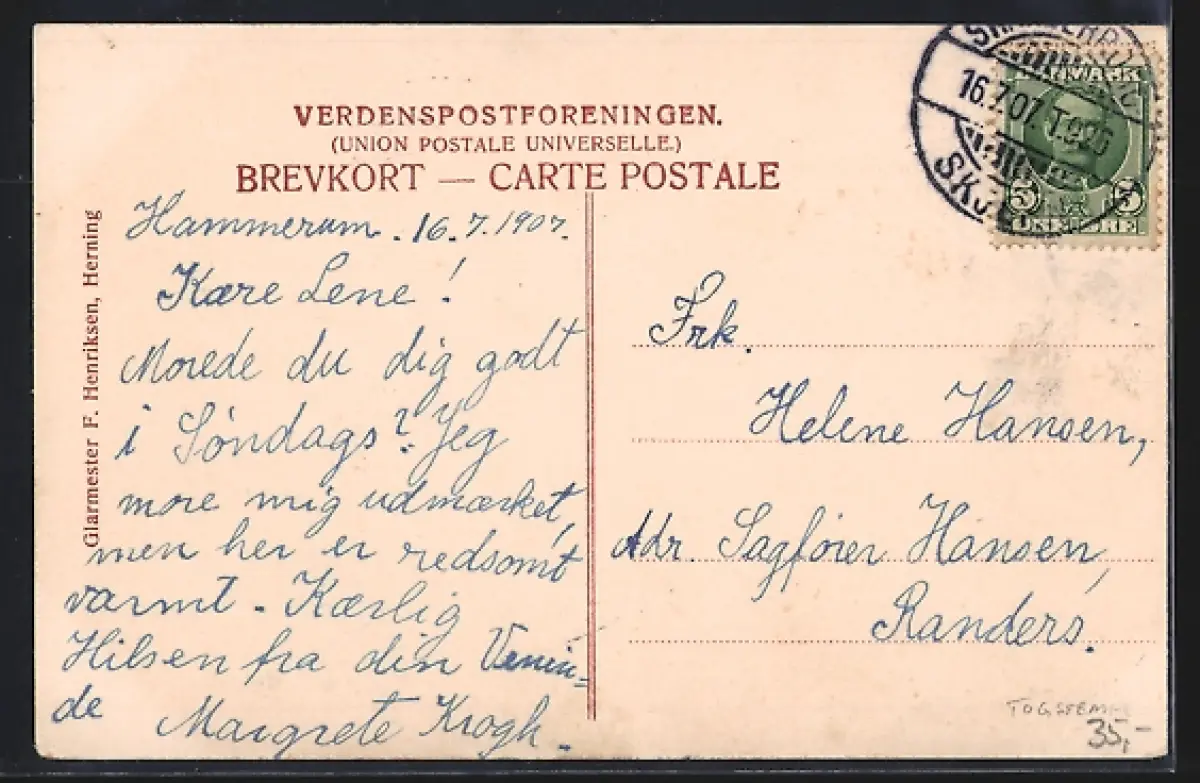 VERDENSPOSTFORENINGEN.
(UNION POSTALE UNIVERSELLE.)
BREVKORT — CARTE POSTALE
Glarmester F. Henriksen, Herning
Hammerum. 16.7.1907.
Kære Lene!
Morede du dig godt
i Søndags? Jeg
more mig udmærket,
men her er redsomt
varmt. Kærlig
Hilsen fra din Venin=
de
Margrete Krogh.
16.7.07
DANMARK
5 5
Frk.
Helene Hansen,
Adr. Sagfører Hansen,
Randers.
35,-